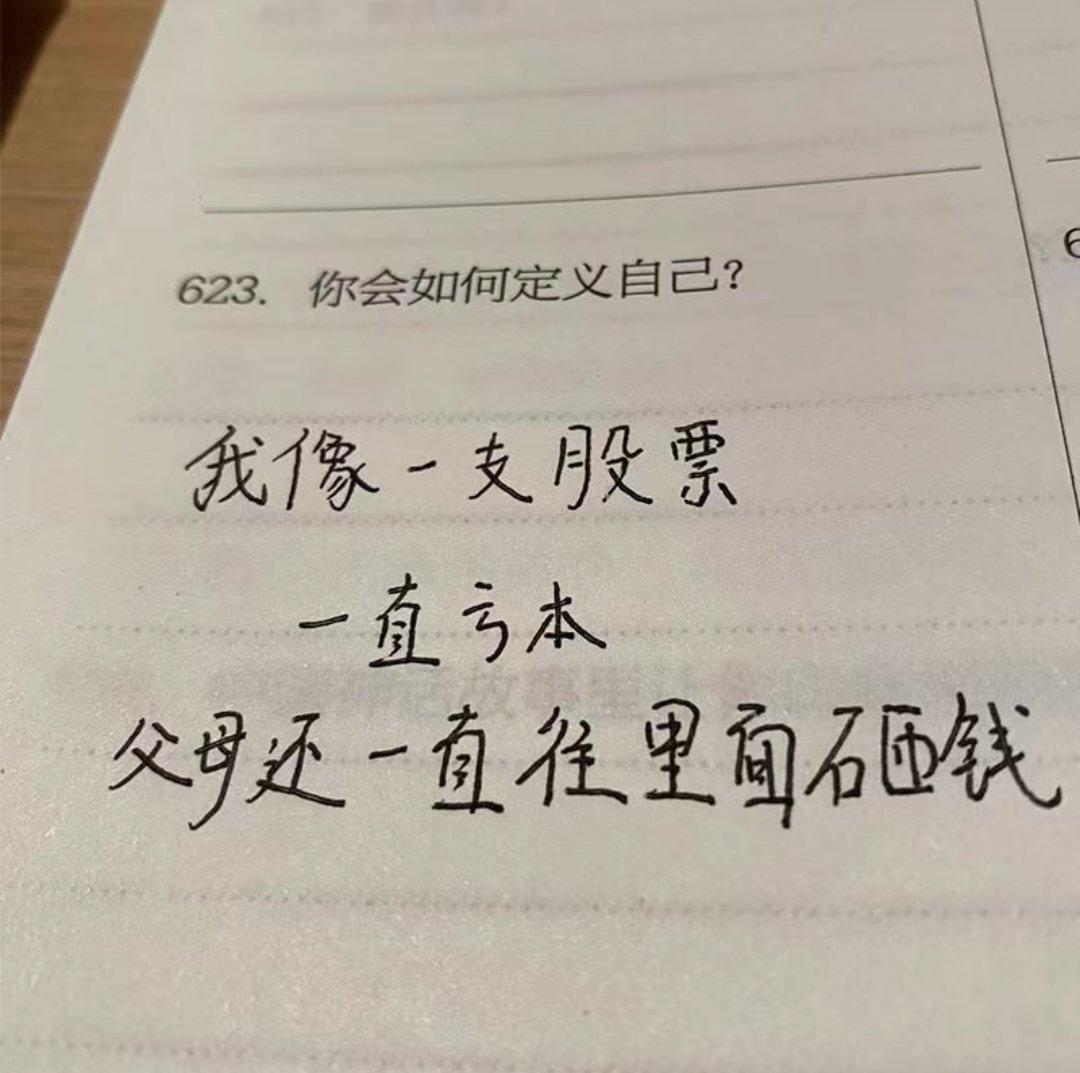 623. 你会如何定义自己?
我像一支股票
一直亏本
父母还一直往里面砸钱